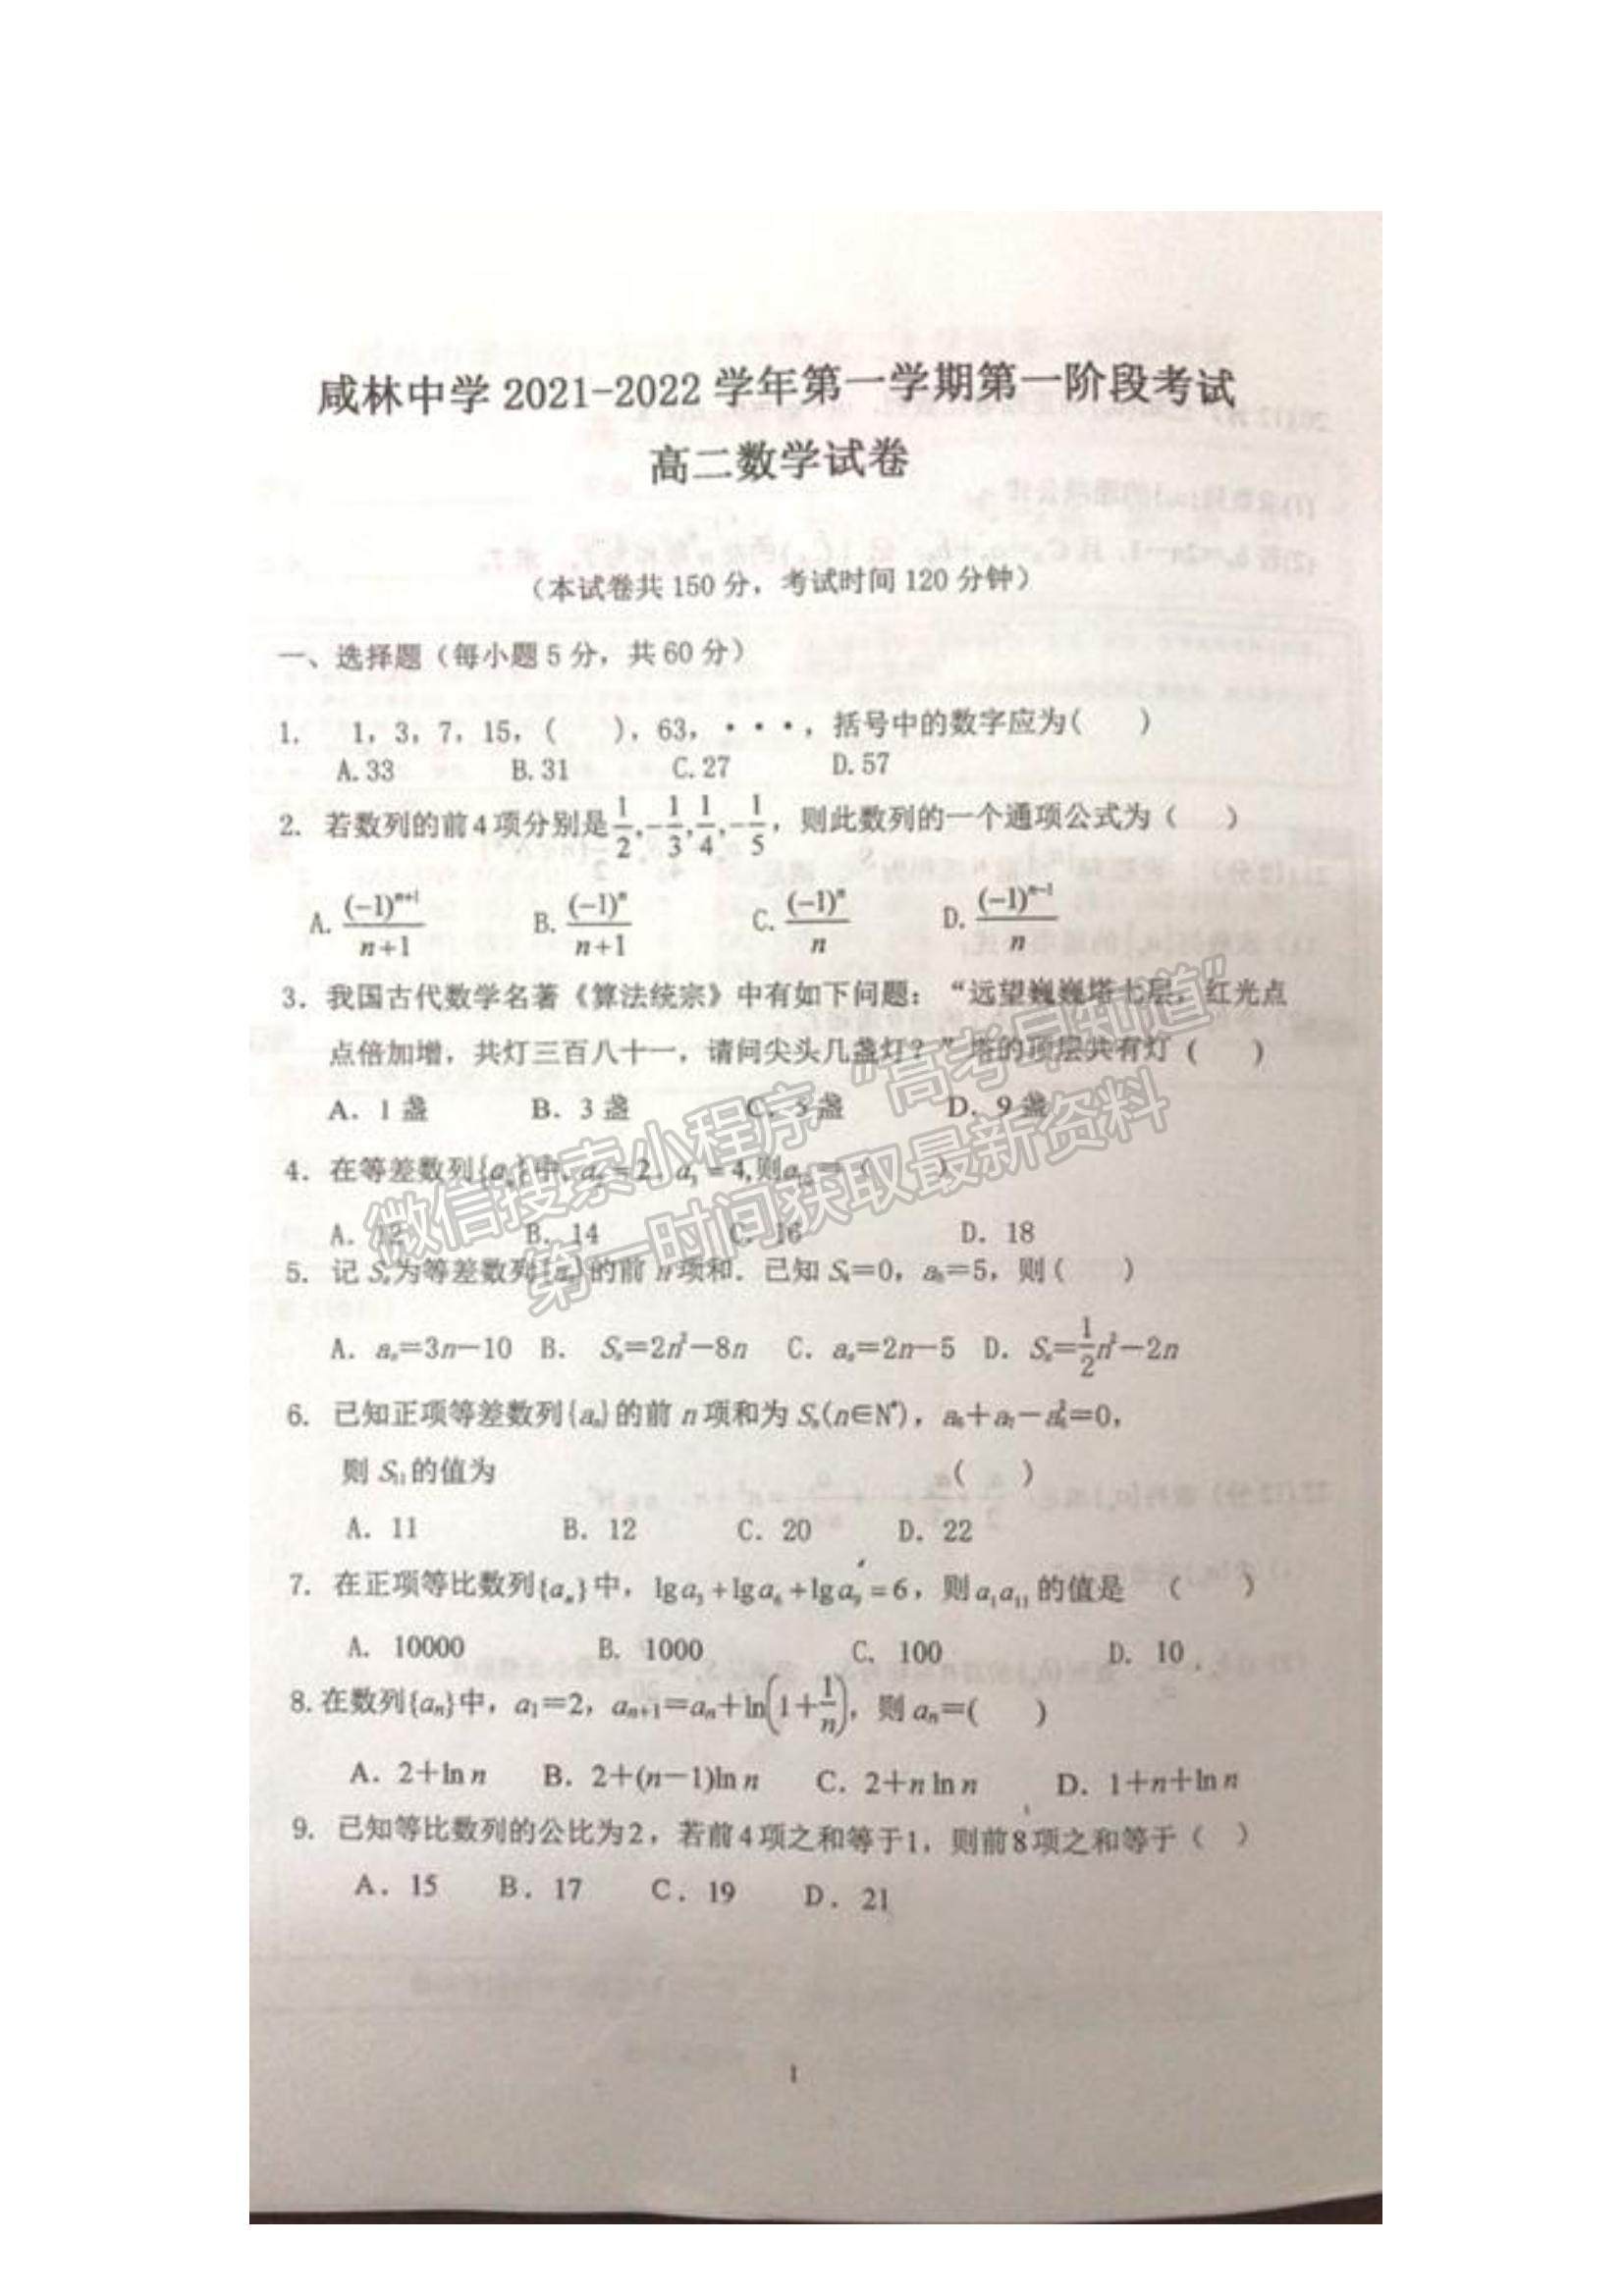 咸林中学 2021-2022 学年第一学期第一阶段考试
高二数学试卷
（本试卷共 150 分，考试时间 120 分钟）
一、选择题（每小题 5 分，共 60 分）
1. 1，3，7，15，( )，63，···，括号中的数字应为( )
A.33 B.31 C.27 D.57
2. 若数列的前4项分别是 1/2, -1/3, 1/4, -1/5，则此数列的一个通项公式为（ ）
A. (-1)^{n+1}/(n+1) B. (-1)^n/(n+1) C. (-1)^n/n D. (-1)^{n-1}/n
3. 我国古代数学名著《算法统宗》中有如下问题：“远望巍巍塔七层，红光点
点倍加增，共灯三百八十一，请问尖头几盏灯？”塔的顶层共有灯 ( )
A. 1 盏 B. 3 盏 C. 5 盏 D. 9 盏
4. 在等差数列{aₙ}中, =2, =4,则 =( )
A. 12 B. 14 C. 16 D. 18
5. 记 Sₙ为等差数列{aₙ}的前 n 项和．已知 S₄=0，a₅=5，则 ( )
A. aₙ=3n-10 B. Sₙ=2n²-8n C. aₙ=2n-5 D. Sₙ=1/2n²-2n
6. 已知正项等差数列{aₙ}的前 n 项和为 Sₙ(n∈N*)，a₅+a₇-a₆²=0，
则 S₁₁的值为 ( )
A. 11 B. 12 C. 20 D. 22
7. 在正项等比数列{aₙ}中，lga₃+lga₆+lga₉=6，则a₁a₁₁的值是 ( )
A. 10000 B. 1000 C. 100 D. 10
8.在数列{aₙ}中，a₁=2，aₙ₊₁=aₙ+ln(1+1/n)，则 aₙ=( )
A. 2+ln n B. 2+(n-1)ln n C. 2+n ln n D. 1+n+ln n
9. 已知等比数列的公比为2，若前4项之和等于1，则前8项之和等于（ ）
A. 15 B. 17 C. 19 D. 21
1
微信搜索小程序“高考早知道”
第一时间获取最新资料